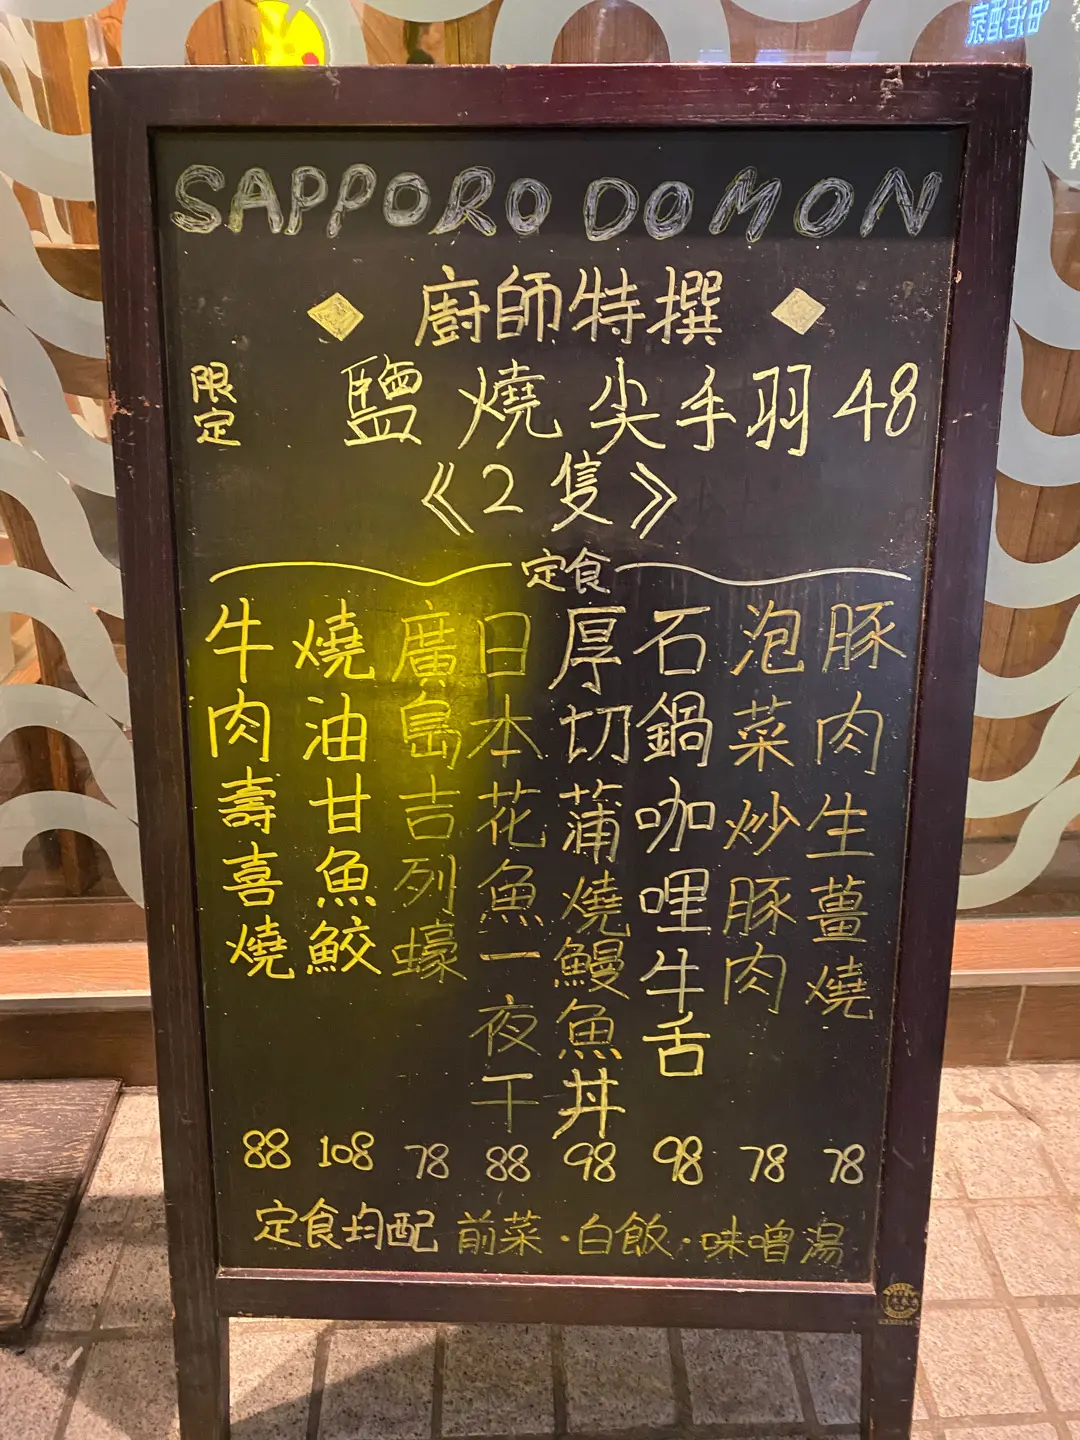 SAPPORO DOMON
廚師特撰
限定 鹽燒尖手羽 48
《2隻》
定食
豚肉生薑燒 78
泡菜炒豚肉 78
石鍋咖哩牛舌 98
厚切蒲燒鰻魚丼 98
日本花魚一夜干 88
廣島吉列蠔 78
燒油甘魚鮫 108
牛肉壽喜燒 88
定食均配 前菜·白飯·味噌湯